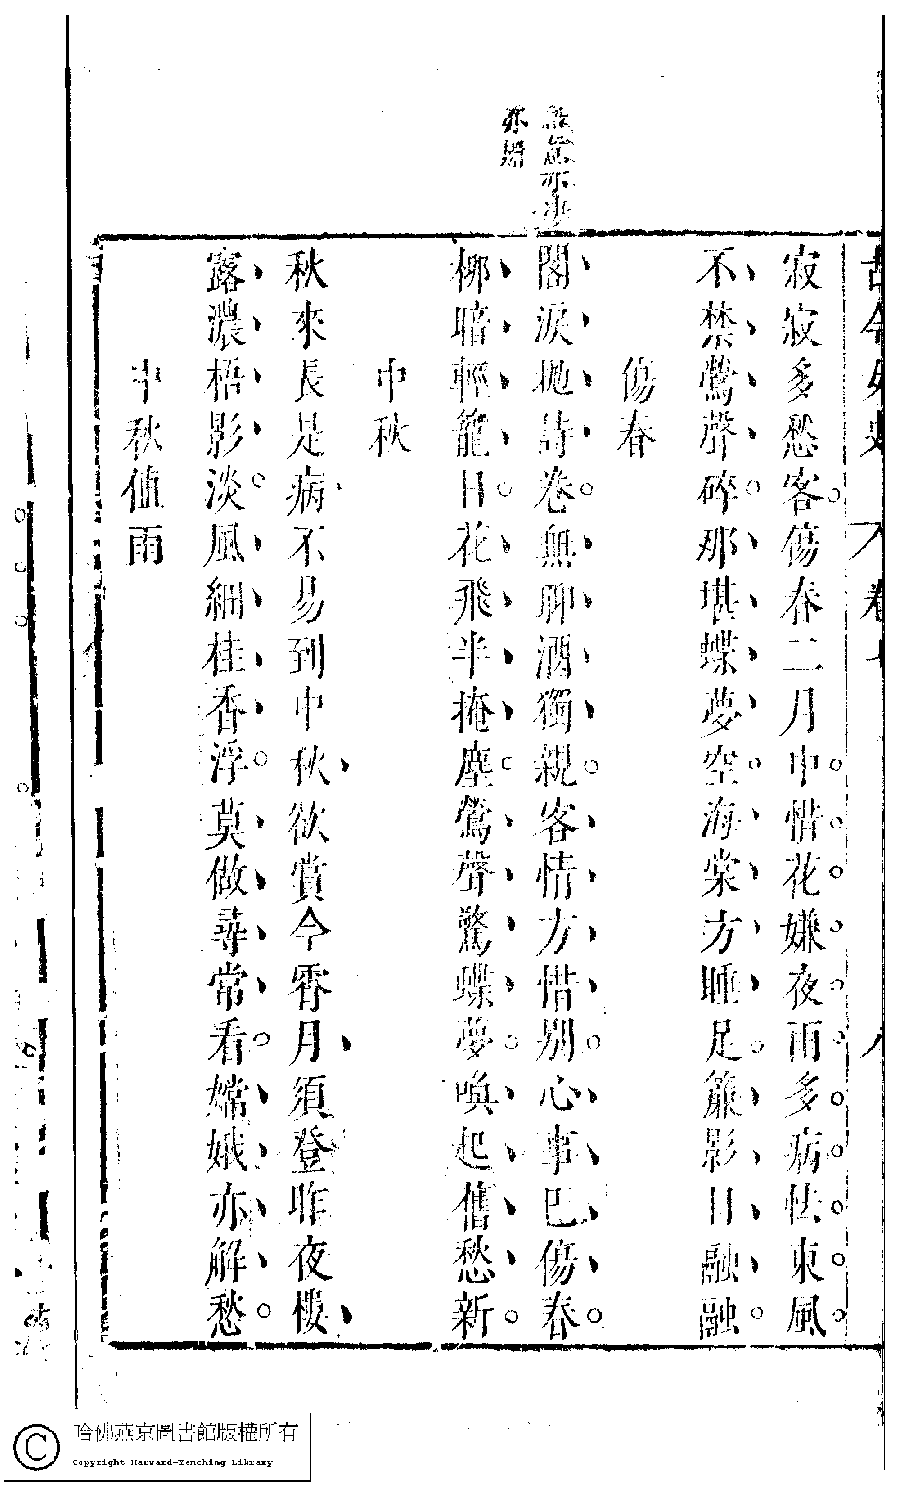 古今女史 卷七 八
寂寂多愁客傷春二月中惜花嫌夜雨多病怯東風
不禁鶯聲碎那堪蝶夢空海棠方睡足簾影日融融
傷春
閣淚拋詩卷無聊酒獨親客情方惜別心事巳傷春
柳暗輕籠日花飛半掩塵鶯聲驚蝶夢喚起舊愁新
中秋
秋來長是病不易到中秋欲賞今霄月須登昨夜樓
露濃梧影淡風細桂香浮莫做尋常看嫦娥亦解愁
中秋值雨
哈佛燕京圖書館版權所有
Copyright Harvard-Yenching Library